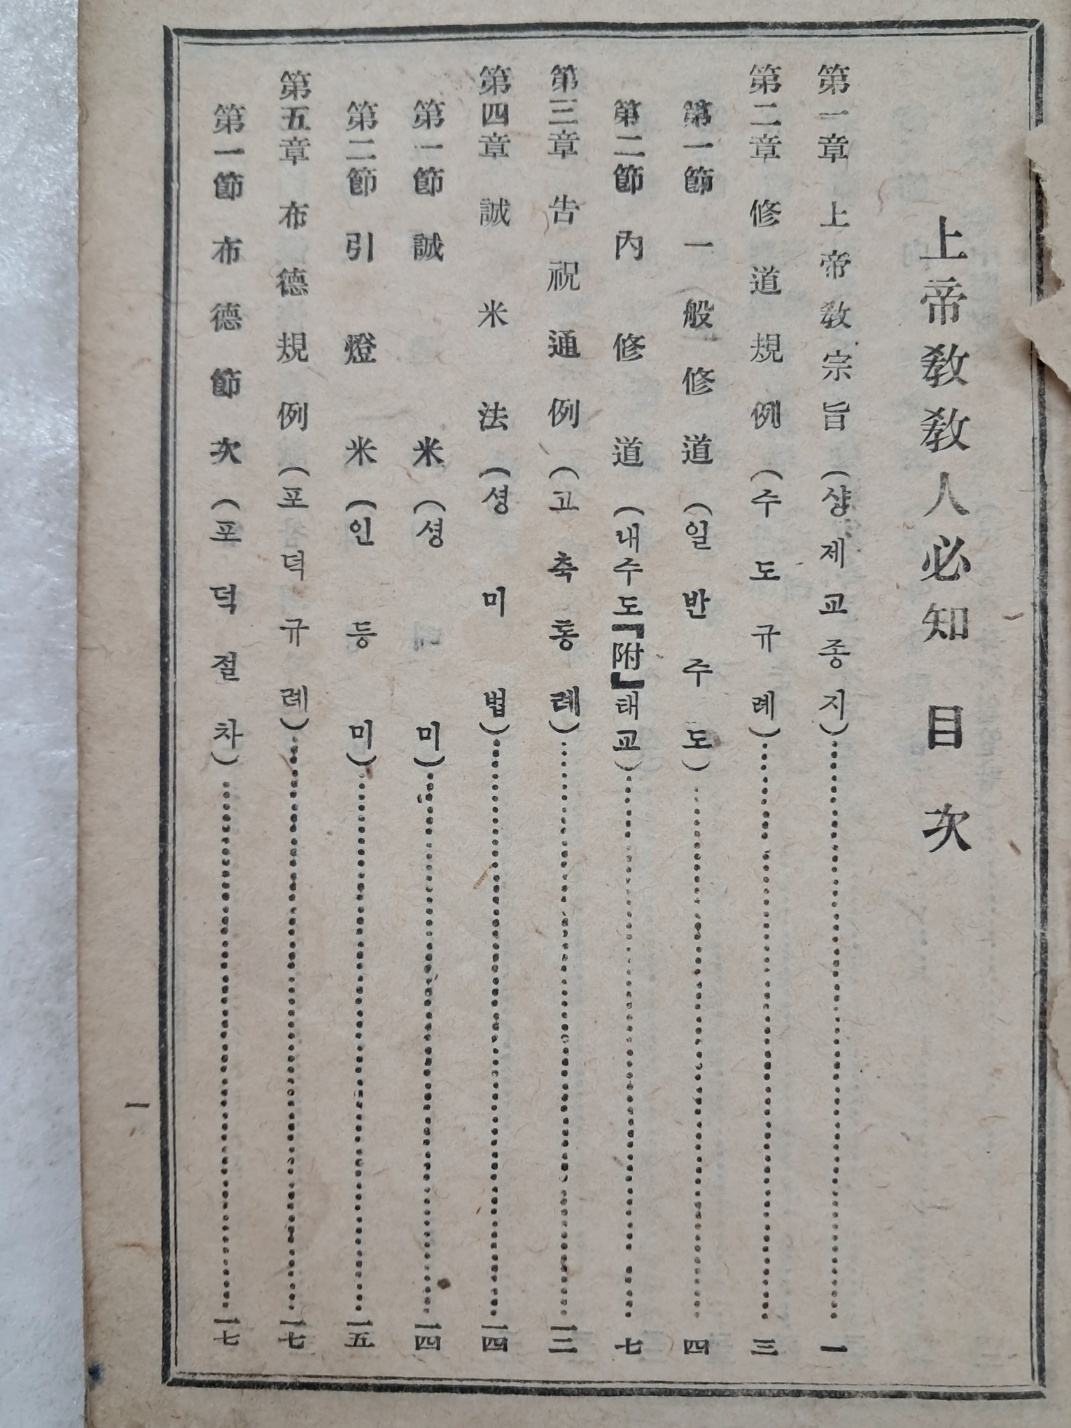 上帝敎敎人必知 目次
第一章 上帝敎宗旨(샹제교종지)……一
第二章 修道規例(수도규례)……三
第一節 一般修道(일반수도)……四
第二節 內修道(내수도『附』태교)……七
第三章 告祝通例(고축통례)……一二
第四章 誠米法(셩미법)……一四
第一節 誠米(셩미)……一四
第二節 引燈米(인등미)……一五
第五章 布德規例(포덕규례)……一七
第一節 布德節次(포덕절차)……一七
一